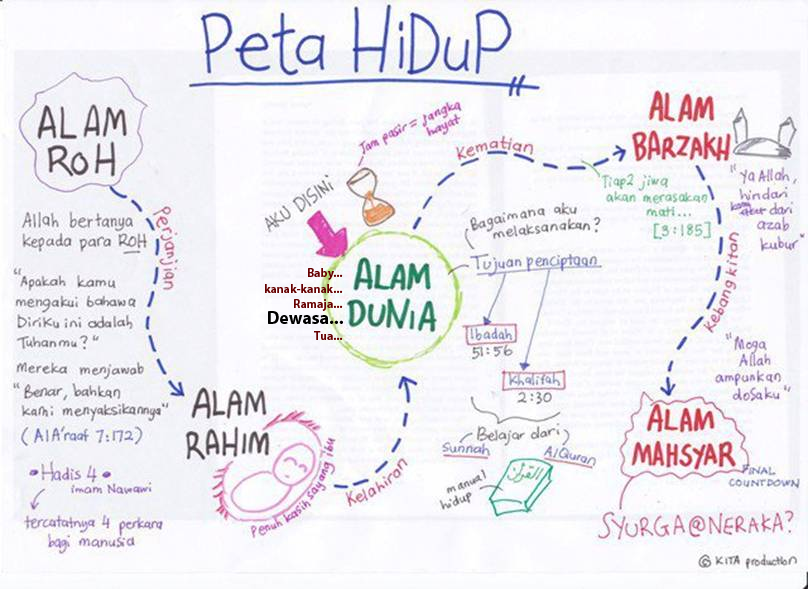 Peta HiDuP
ALAM
ROH
Allah bertanya
kepada para ROH
"Apakah kamu
mengakui bahawa
Diriku ini adalah
Tuhanmu?"
Mereka menjawab
"Benar, bahkan
kami menyaksikannya"
(Al A'raaf 7:172)
• Hadis 4 •
imam Nawawi
tercatatnya 4 perkara
bagi manusia
Perjanjian
ALAM
RAHIM
Penuh kasih sayang ibu
Kelahiran
AKU DISINI
Jam pasir = jangka
hayat
Baby...
kanak-kanak...
Ramaja...
Dewasa...
Tua...
ALAM
DUNIA
Bagaimana aku
melaksanakan?
Tujuan penciptaan
Ibadah
51:56
Khalifah
2:30
Belajar dari
Sunnah
AlQuran
manual
hidup
القرآن
Kematian
Tiap2 jiwa
akan merasakan
mati...
[3:185]
ALAM
BARZAKH
"Ya Allah,
hindari
dari
azab
kubur"
Kebangkitan
"Moga
Allah
ampunkan
dosaku"
ALAM
MAHSYAR
FINAL
COUNTDOWN
SYURGA@NERAKA?
© KITA production